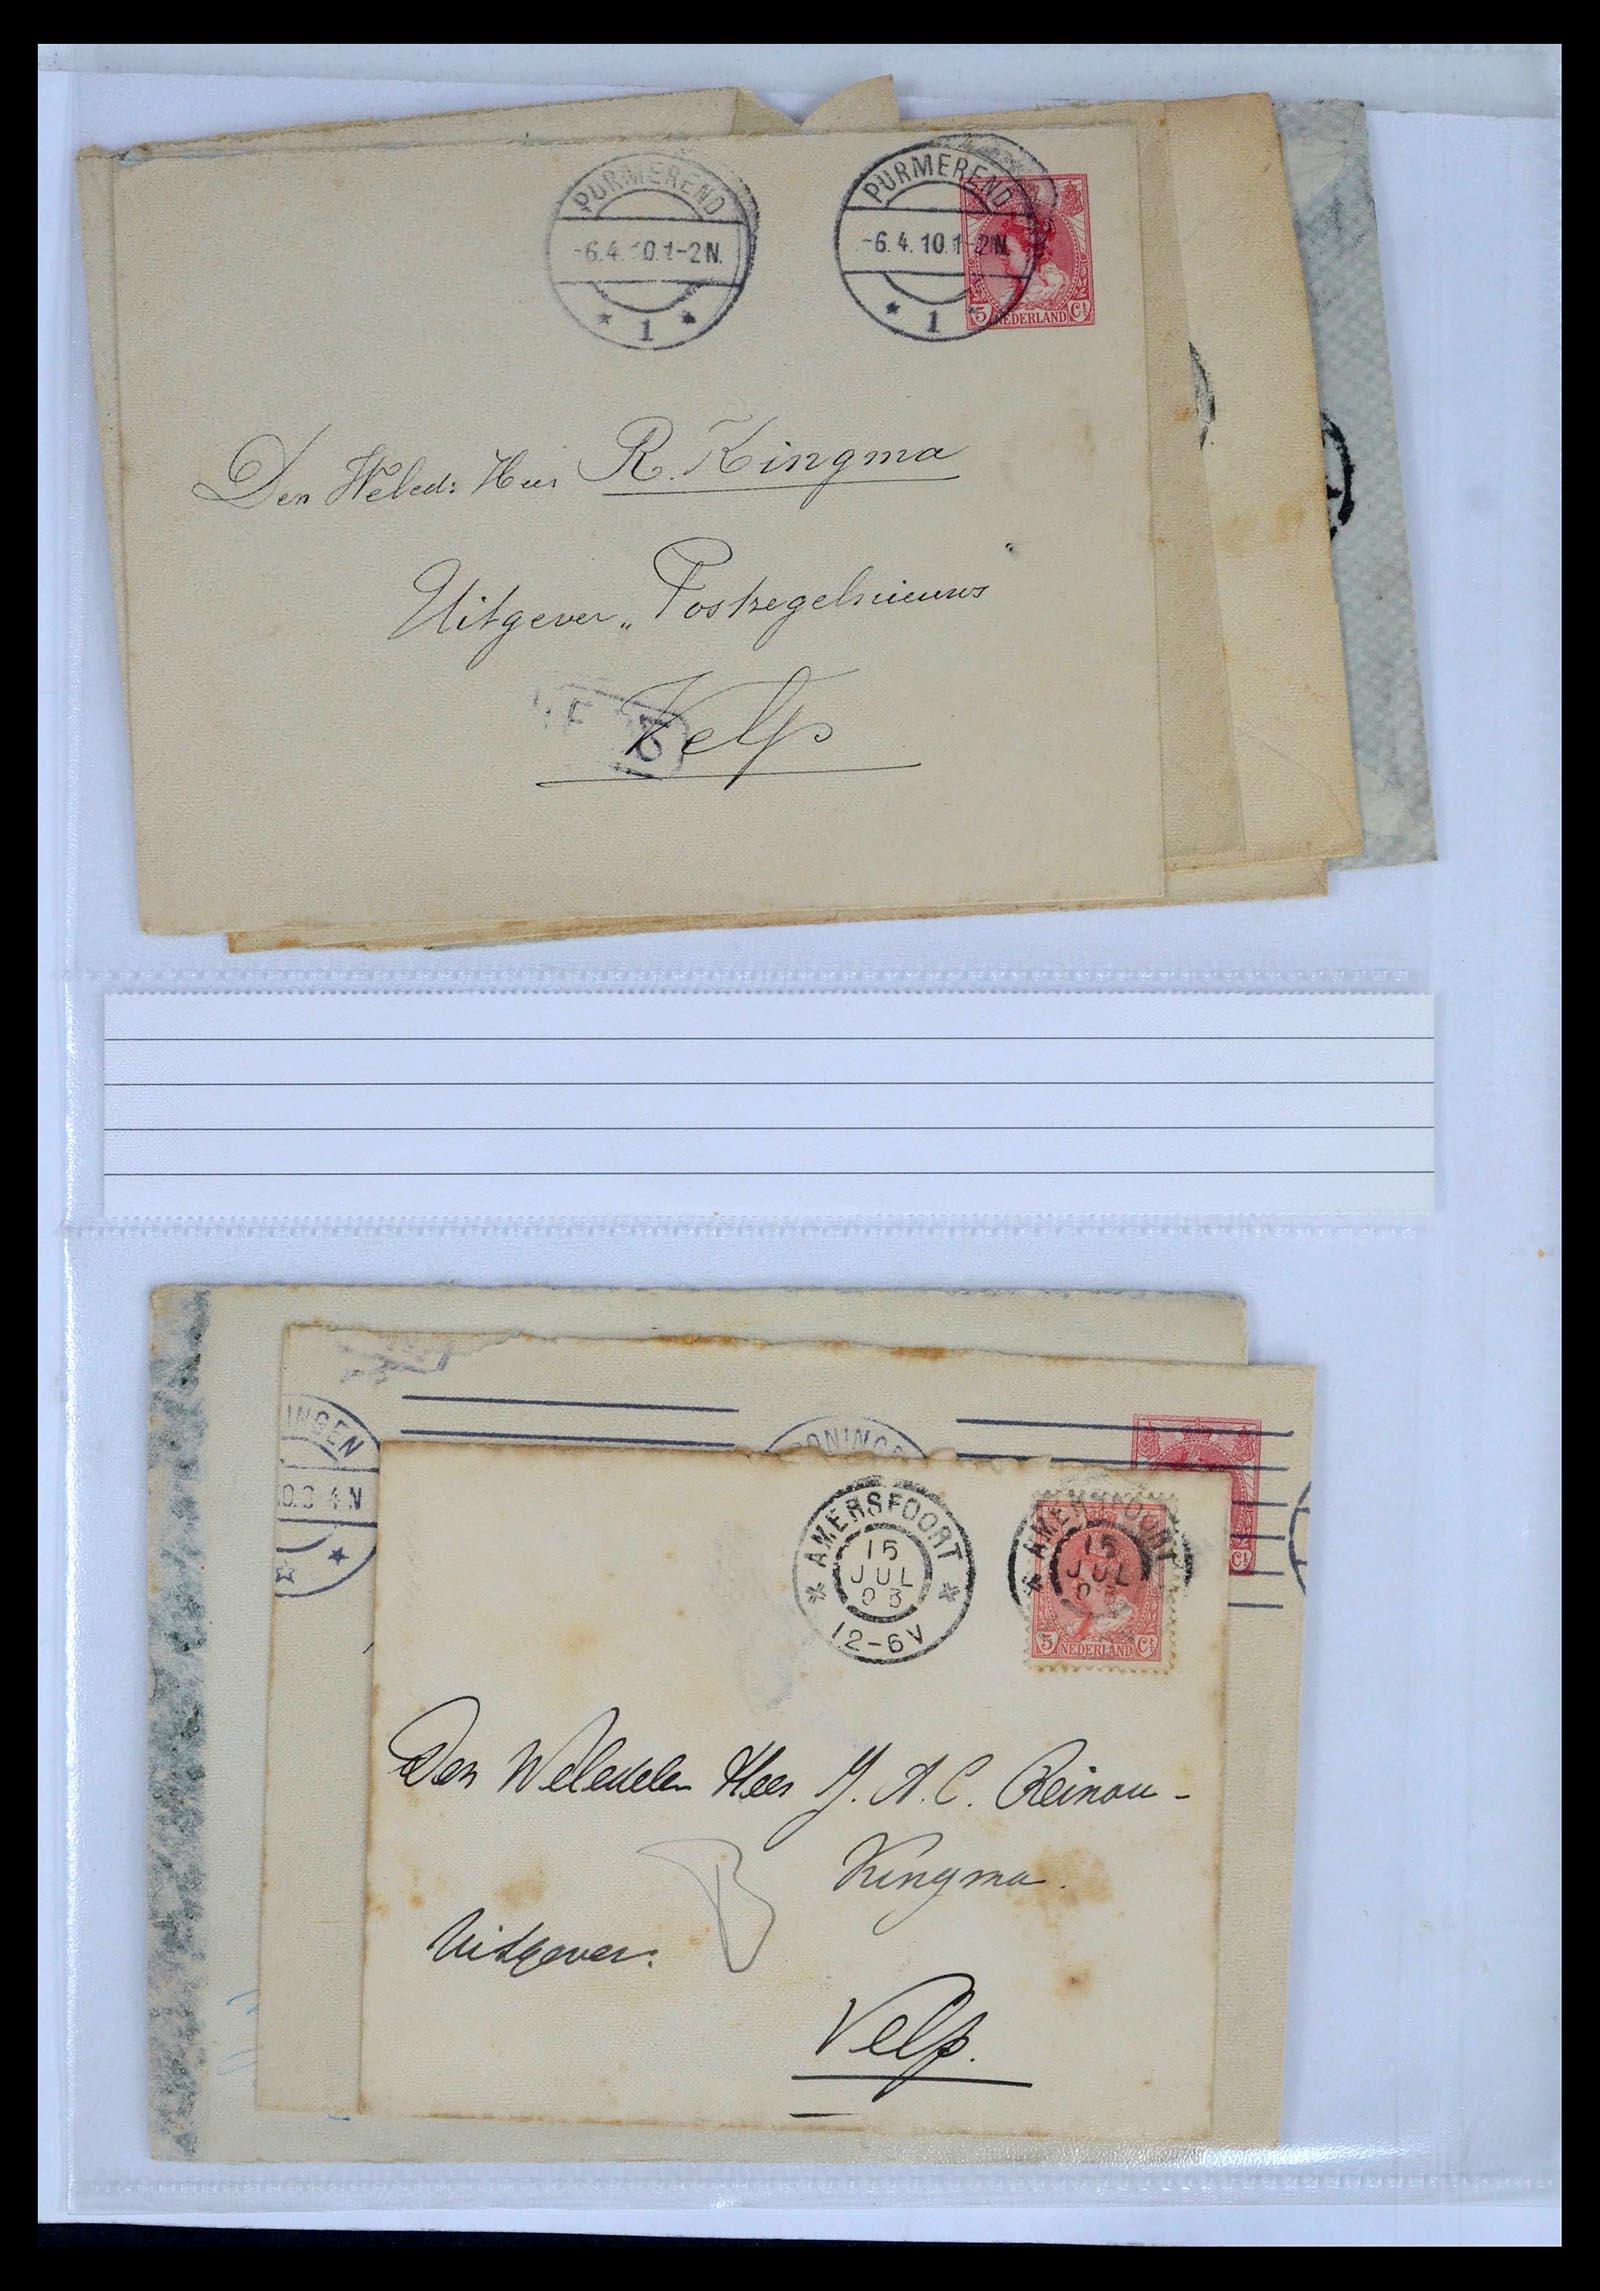 PURMEREND
-6.4.10.1-2N.
1
PURMEREND
-6.4.10.1-2N.
1
5 NEDERLAND Ct
Den Weled: Heer R. Kingma
Uitgever „Postzegelnieuws"
Velp
INGEN
4 N
5 Ct
AMERSFOORT
15
JUL
03
12-6V
AMERSFOORT
15
JUL
5 NEDERLAND Ct
Den Weledelen Heer J. A. C. Reinou-
Kingma.
Uitgever.
B
Velp.